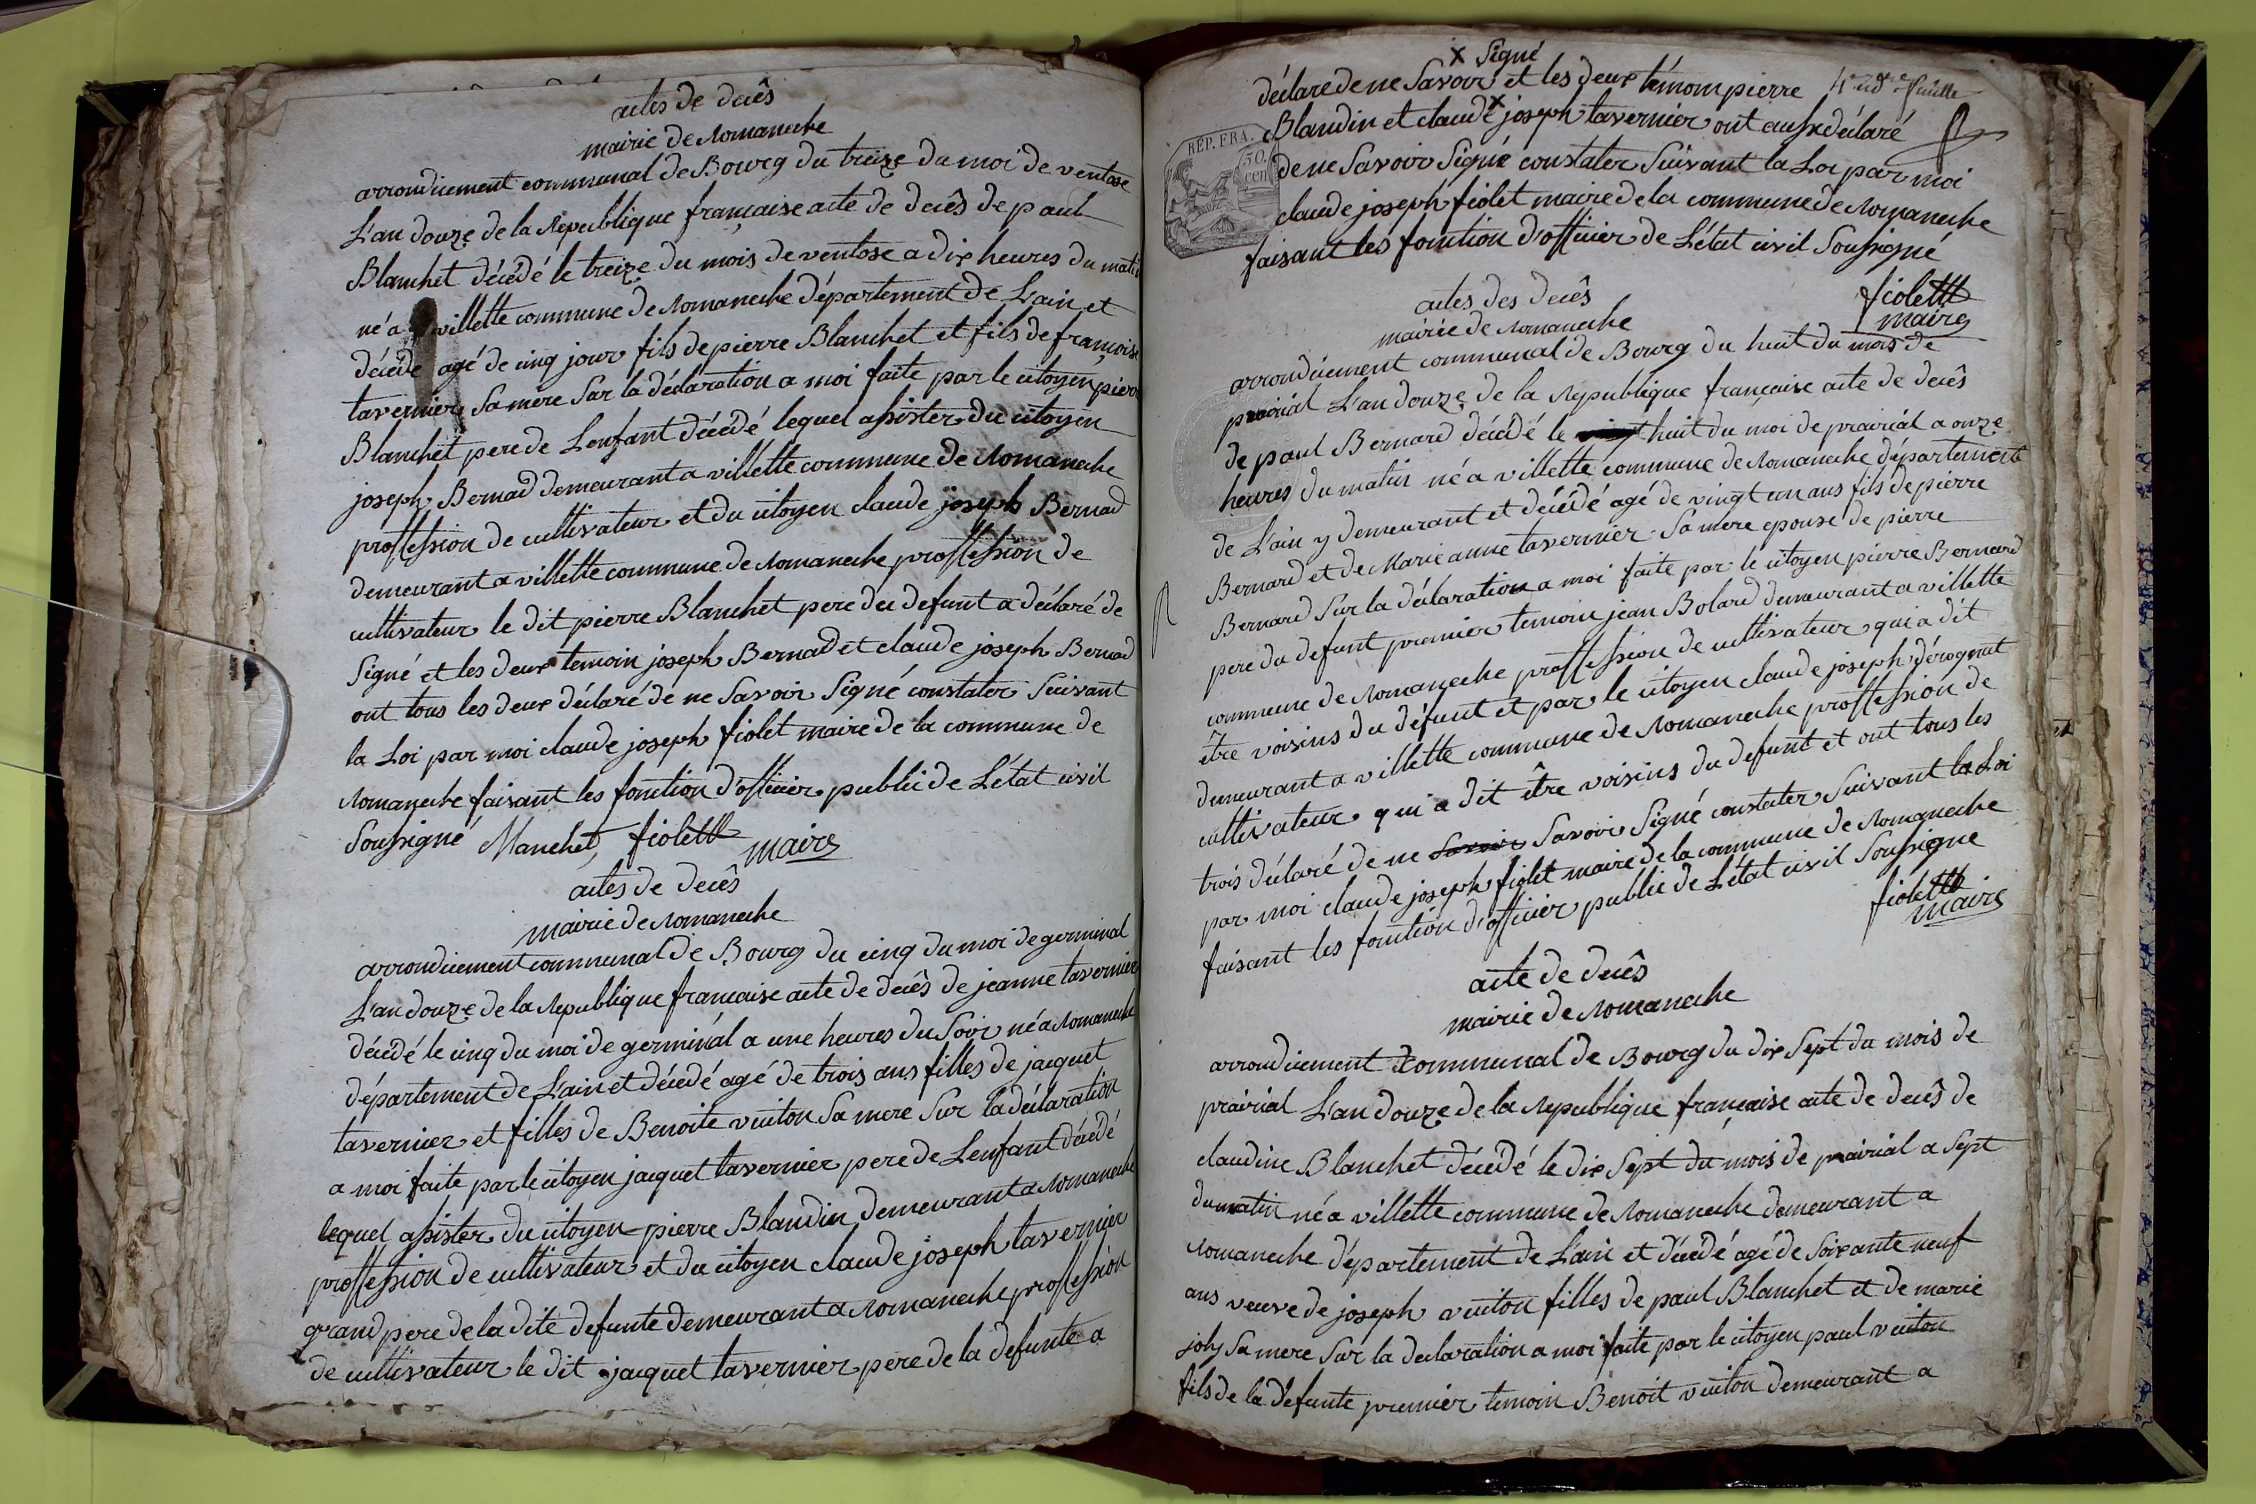 actes de decês
mairie de Romaneche
arrondicement communal de Bourg du treize du moi de ventose
L'an douze de la Republique francaise acte de decês de paul
Blanchet décédé le treize du mois de ventose a dix heures du matin
né a villette commune de Romaneche département de L'ain et
décéde agé de cinq jour fils de pierre Blanchet et fils de francoise
tavernier Sa mere Sur la déclaration a moi faite par le citoyen pierre
Blanchet pere de L'enfant décédé lequel assister du citoyen
joseph Bernad demeurant a villette commune de Romaneche
proffession de cultivateur et du citoyen claude joseph Bernad
demeurant a villette commune de Romaneche proffession de
cultivateur le dit pierre Blanchet pere du defunt a déclaré de
Signé et les deux temoin joseph Bernad et claude joseph Bernad
ont tous les deux déclaré de ne Savoir Signé constater Suivant
la Loi par moi claude joseph fiolet maire de la commune de
Romaneche faisant les fonction d'officier public de L'état civil
Soussigné Blanchet fiolet maire
actes de decês
mairie de Romaneche
arrondicement communal de Bourg du cinq du moi de germinal
L'an douze de la Republique francaise acte de decês de jeanne tavernier
décédé le cinq du moi de germinal a une heures du Soir né a Romaneche
département de L'ain et décédé agé de trois ans filles de jacquet
tavernier et filles de Benoite vuiton Sa mere Sur la déclaration
a moi faite par le citoyen jacquet tavernier pere de L'enfant décédé
lequel assister du citoyen pierre Blandin demeurant a Romaneche
proffession de cultivateur et du citoyen claude joseph tavernier
grand pere de la dite defunte demeurant a Romaneche proffession
de cultivateur le dit jacquet tavernier pere de la defunte a
x Signé
déclare de ne Savoir et les deux témoin pierre
4e feuille
Blandin et claude x joseph tavernier ont aussi déclaré
RÉP. FRA.
50. cen
de ne Savoir Signé constater Suivant la Loi par moi
claude joseph fiolet maire de la commune de Romaneche
faisant les fonction d'officier de L'état civil Soussigné
fiolet
maire
actes des decês
mairie de Romaneche
arrondicement communal de Bourg du huit du mois de
prairial L'an douze de la Republique française acte de decês
de paul Bernard décédé le huit du moi de prairial a onze
heures du matin né a villette commune de Romaneche département
de L'ain y demeurant et décédé agé de vingt un ans fils de pierre
Bernard et de Marie anne tavernier Sa mere epouse de pierre
Bernard Sur la déclaration a moi faite par le citoyen pierre Bernard
pere du defunt premier temoin jean Bolard demeurant a villette
commune de Romaneche proffession de cultivateur qui a dit
être voisins du défunt et par le citoyen claude joseph dérognat
demeurant a villette commune de Romaneche proffession de
cultivateur qui a dit être voisins du defunt et ont tous les
trois déclaré de ne Savoir Savoir Signé constater Suivant la Loi
par moi claude joseph fiolet maire de la commune de Romaneche
faisant les fonction d'officier public de L'état civil Soussigne
fiolet
maire
acte de decês
mairie de Romaneche
arrondicement communal de Bourg du dix Sept du mois de
prairial L'an douze de la Republique française acte de decês de
claudine Blanchet décédé le dix Sept du mois de prairial a Sept
du matin né a villette commune de Romaneche demeurant a
Romaneche département de L'ain et décédé agé de Soixante neuf
ans veuve de joseph vuiton filles de paul Blanchet et de marie
joly Sa mere Sur la declaration a moi faite par le citoyen paul vuiton
fils de la defunte premier temoin Benoit vuiton demeurant a